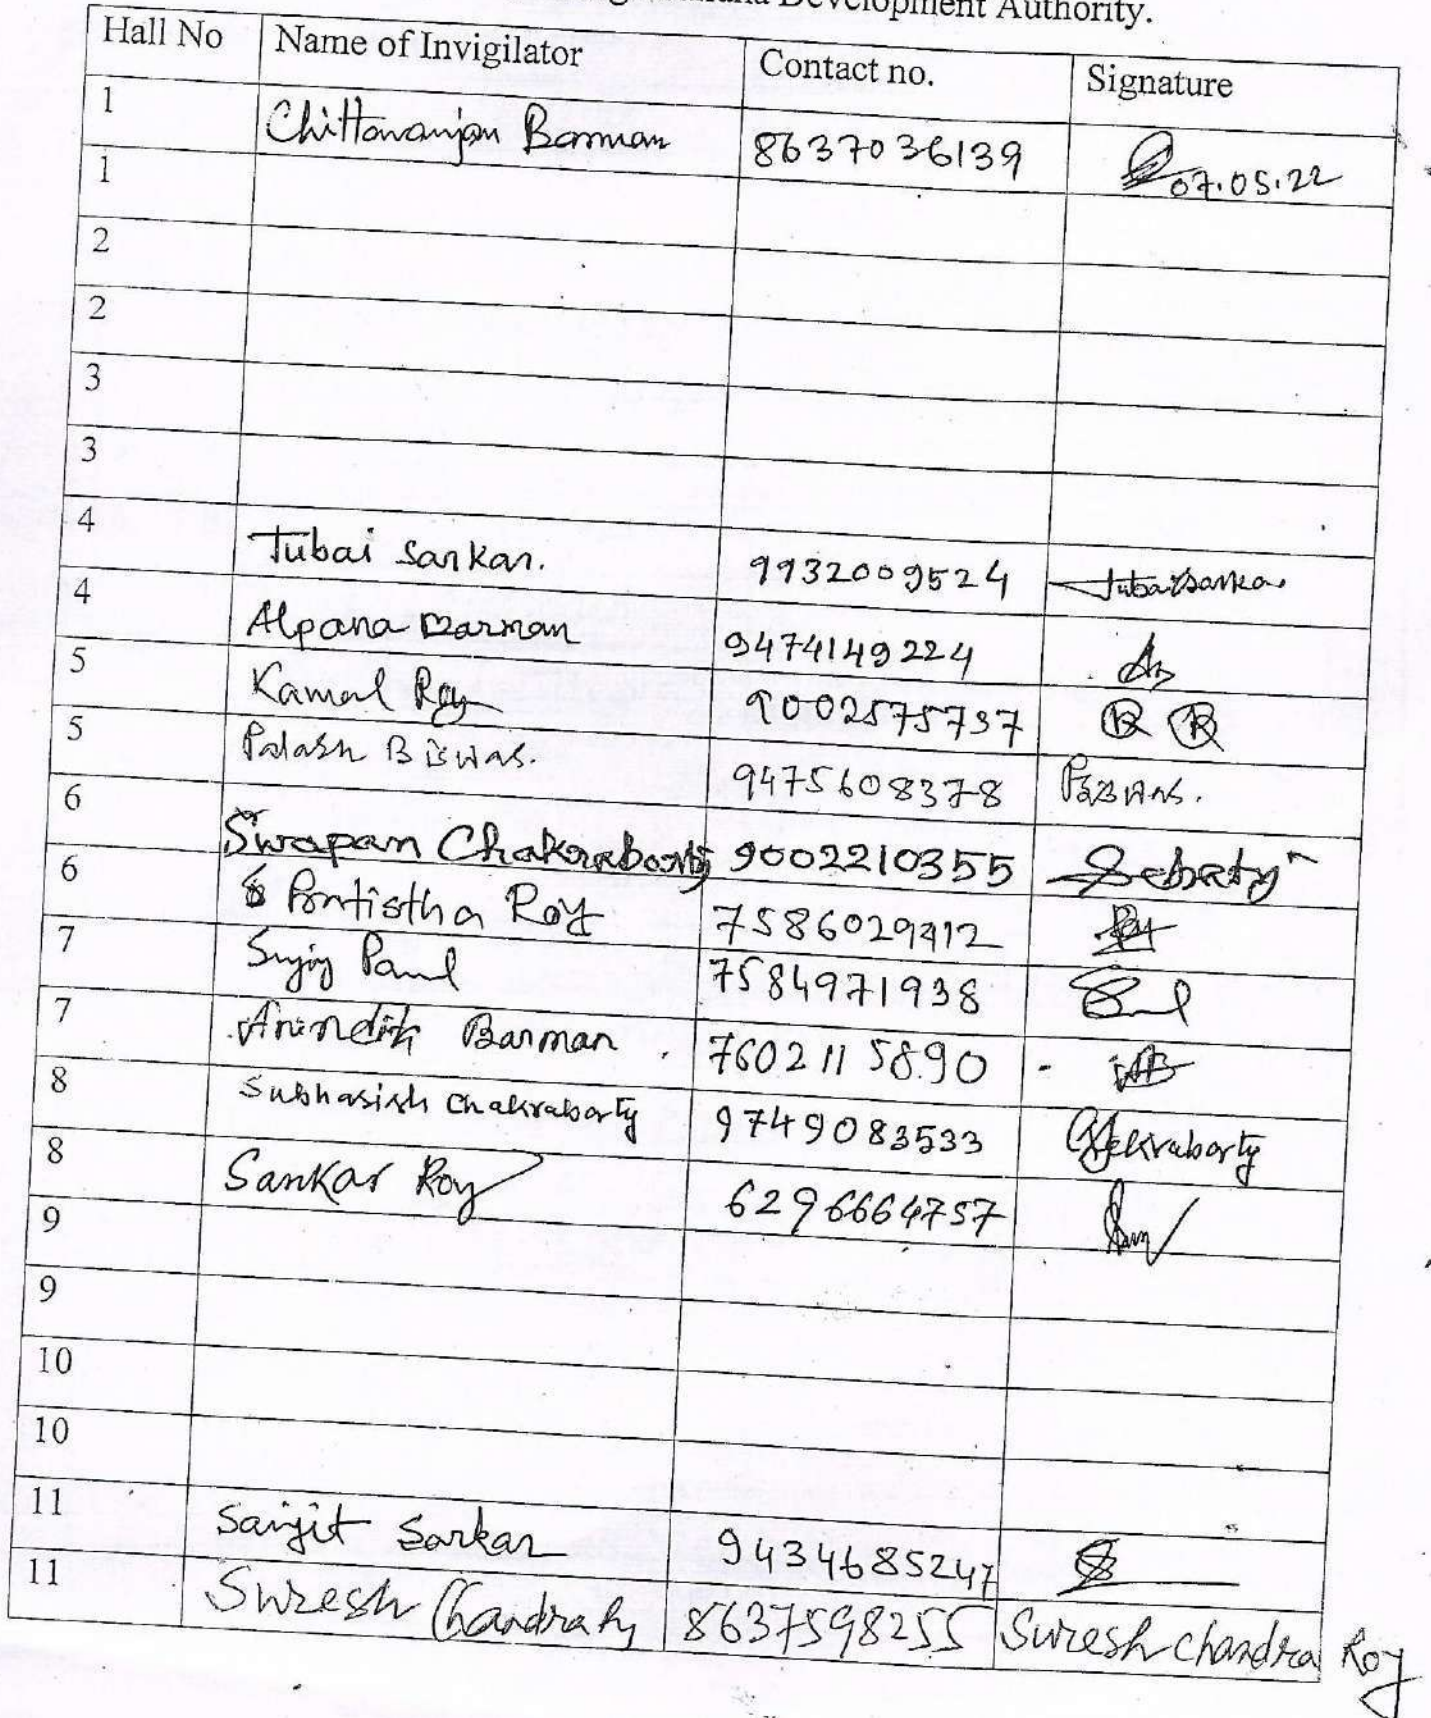 Development Authority.
Hall No Name of Invigilator Contact no. Signature
1 Chittaranjan Barman 8637036139 07.05.22
1
2
2
3
3
4 Tubai Sarkar. 9932009524 Tubai Sarkar
4 Alpana Barman 9474149224
5 Kamal Roy 9002575737 R R
5 Palash Biswas. 9475608378 PBiswas.
6 Swapan Chakraborty 9002210355
6 Roy 7586029412
7 Sujoy Paul 7584971938
7 Barman 7602115890
8 Subhasish Chakraborty 9749083533
8 Sankar Roy 6296664757
9
9
10
10
11 Sanjit Sarkar 9434685247
11 Suresh Chandra Ry 8637598255 Suresh Chandra Roy